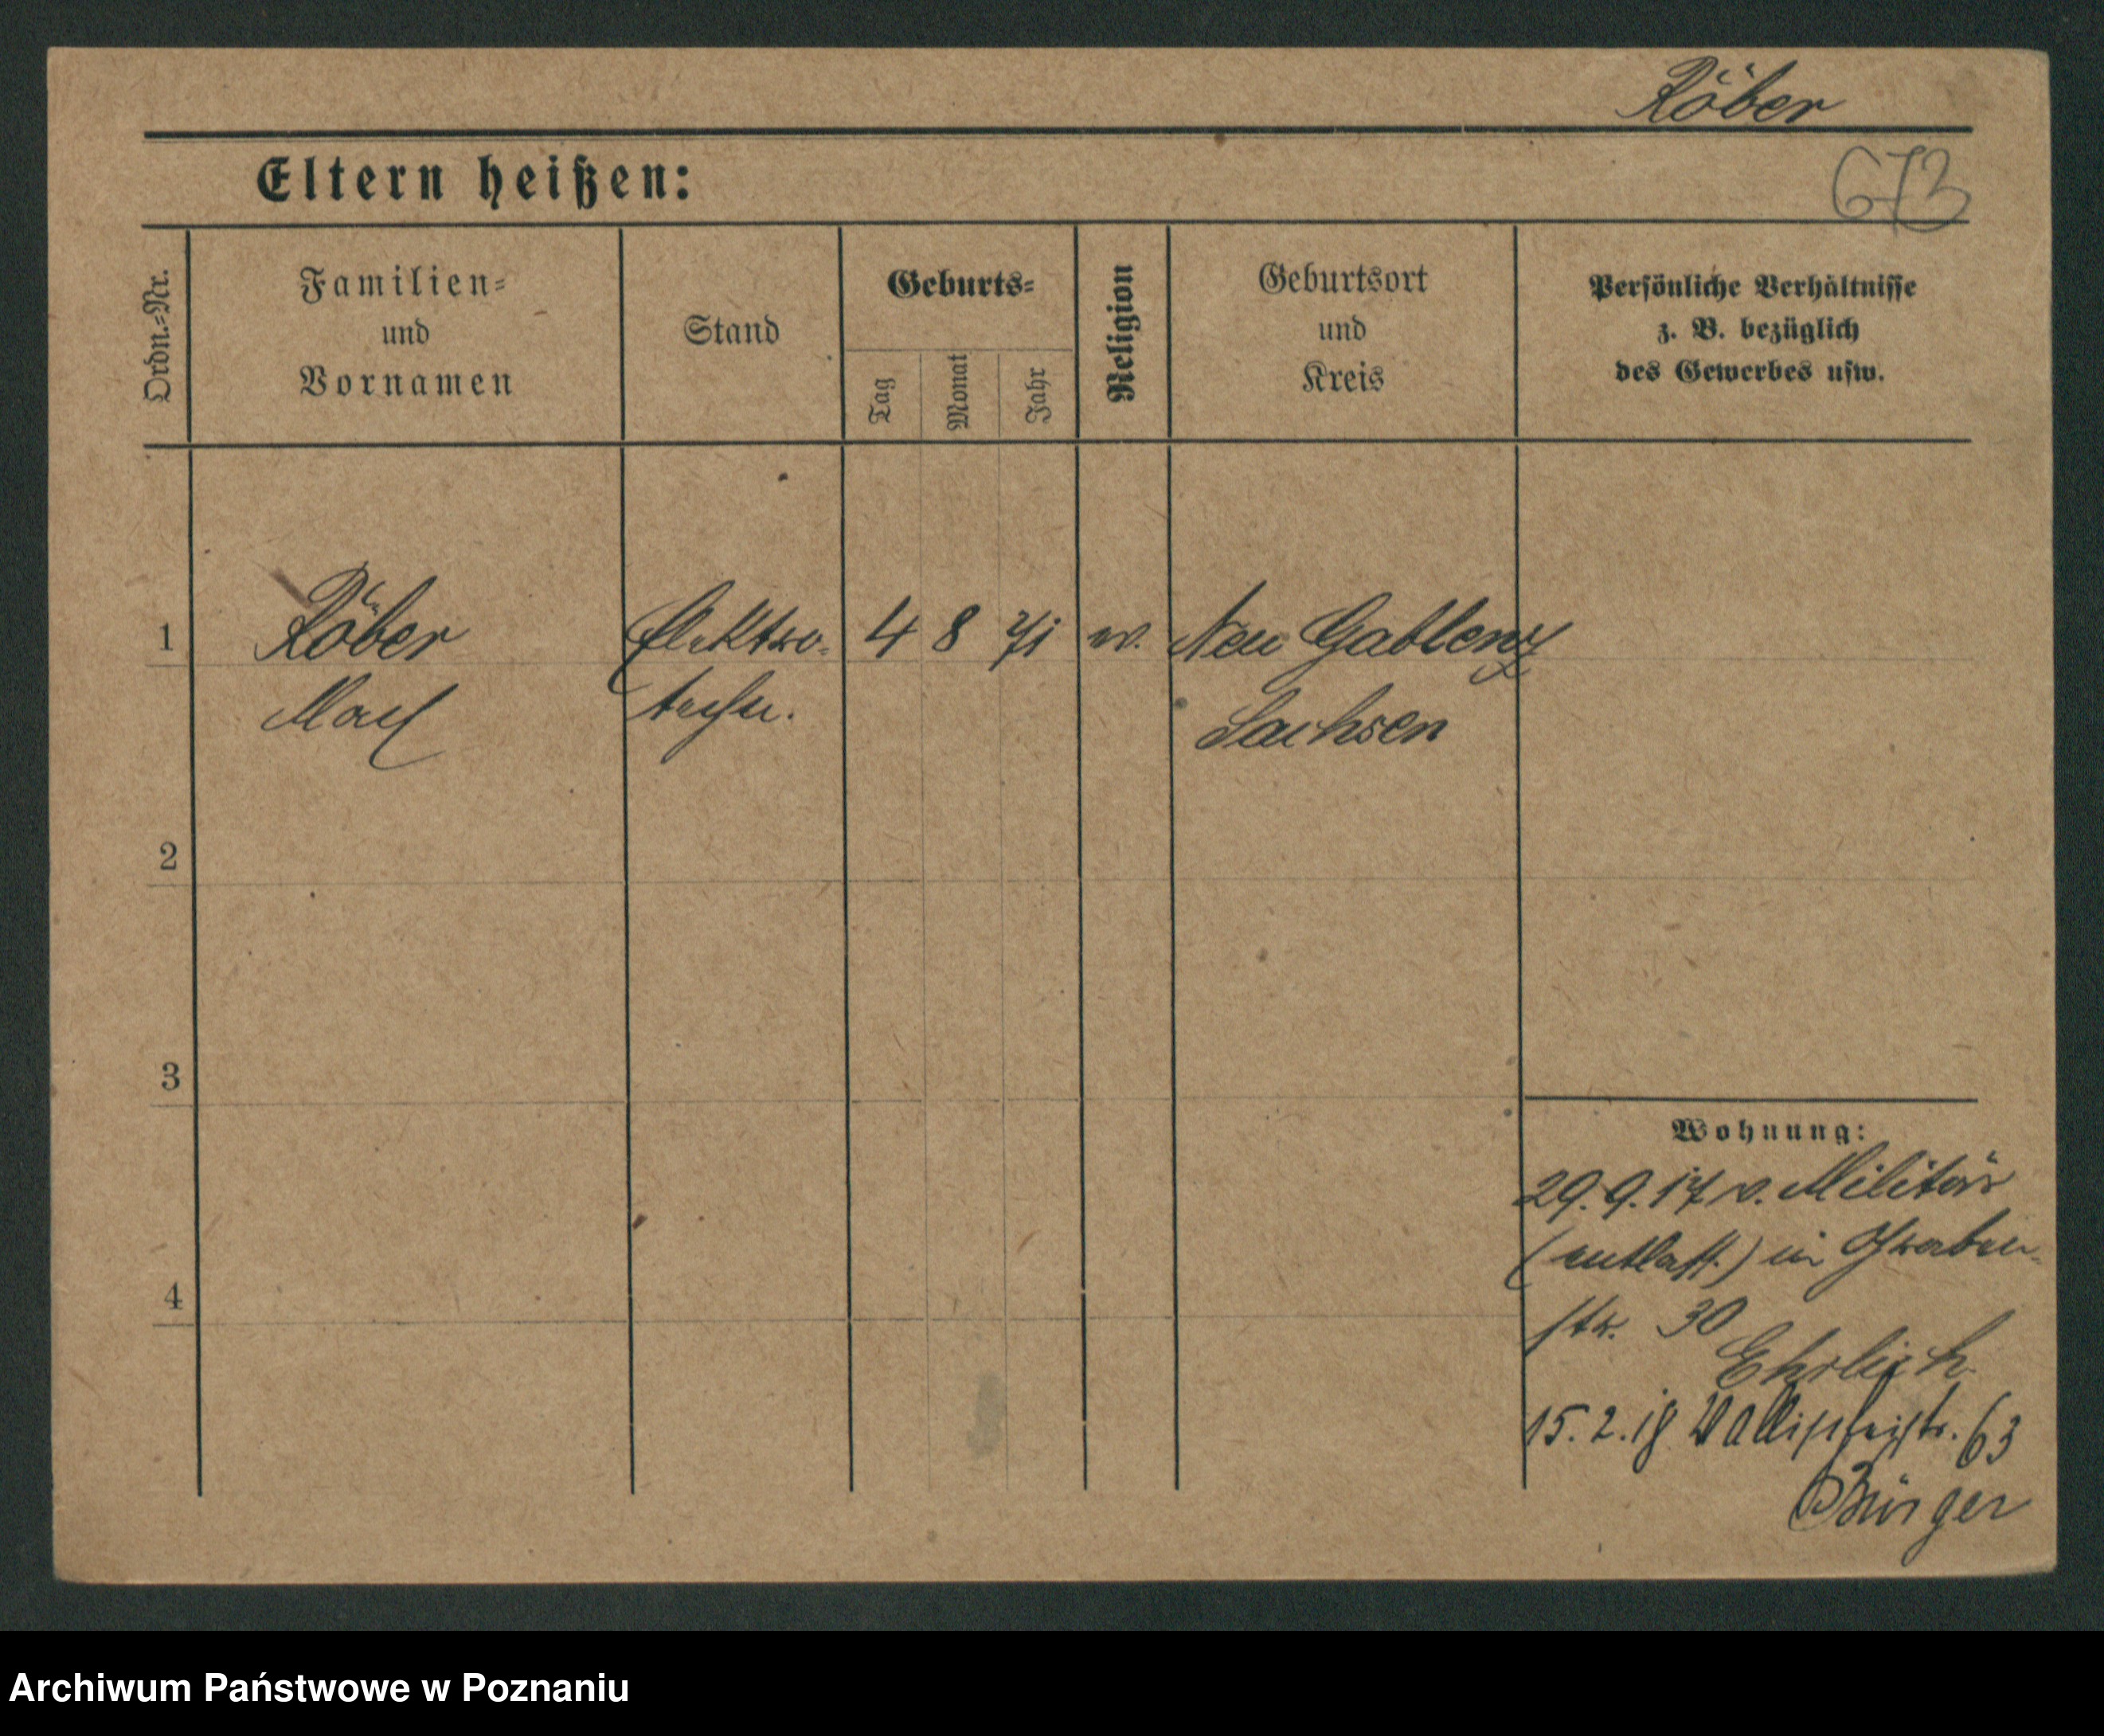 Röber
673
Eltern heißen:
Ordn.-Nr.
Familien-
und
Vornamen
Stand
Geburts-
Tag
Monat
Jahr
Religion
Geburtsort
und
Kreis
Persönliche Verhältnisse
z. B. bezüglich
des Gewerbes usw.
1 Röber Elektro- 4 8 71 ev. Neu Gablenz
Max techn. Sachsen
2
3
4
Wohnung:
29.9.17 v. Militär
(entlass.) in Graben-
str. 30
Ehrlich
15.2.18 Wallischeistr. 63
Bürger
Archiwum Państwowe w Poznaniu